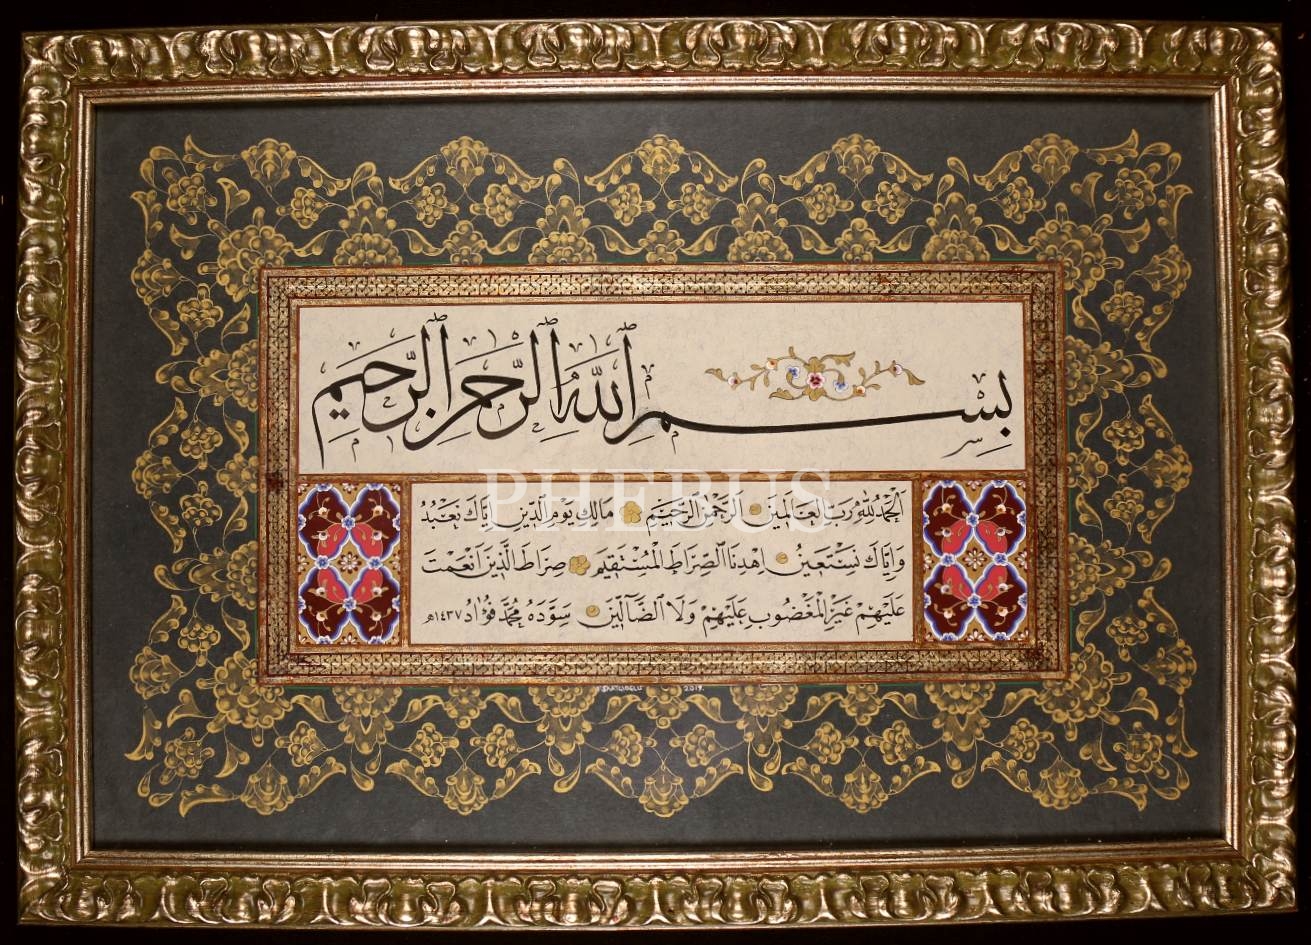 بِسْمِ ٱللَّهِ ٱلرَّحْمَٰنِ ٱلرَّحِيمِ
اَلْحَمْدُ لِلّٰهِ رَبِّ الْعَالَمِينَ الرَّحْمٰنِ الرَّحِيمِ مَالِكِ يَوْمِ الدِّينِ اِيَّاكَ نَعْبُدُ
وَاِيَّاكَ نَسْتَعِينُ اِهْدِنَا الصِّرَاطَ الْمُسْتَقِيمَ صِرَاطَ الَّذِينَ اَنْعَمْتَ
عَلَيْهِمْ غَيْرِ الْمَغْضُوبِ عَلَيْهِمْ وَلَا الضَّالِّينَ سَوَّدَهُ مُحَمَّد فُؤَاد ١٤٣٧هـ
2019.
PHEBUS